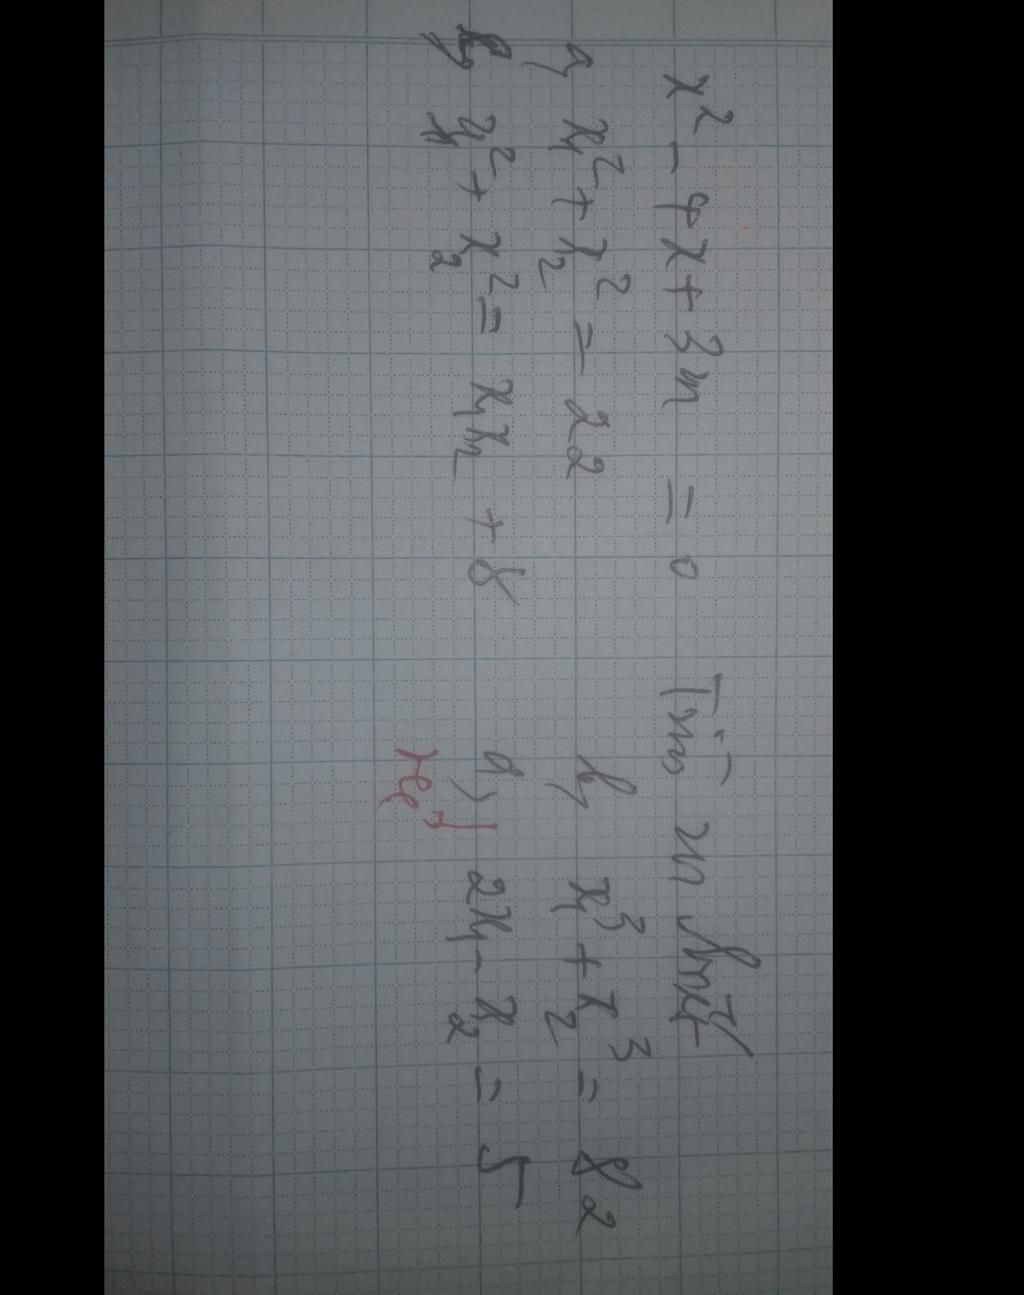 x² - 4x + 3m = 0 Tìm m
x₁² + x₂² = 22 b, x₁³ + x₂³ = 82
x₁² + x₂² = x₁x₂ + 8 d, 2x₁ - x₂ = 5